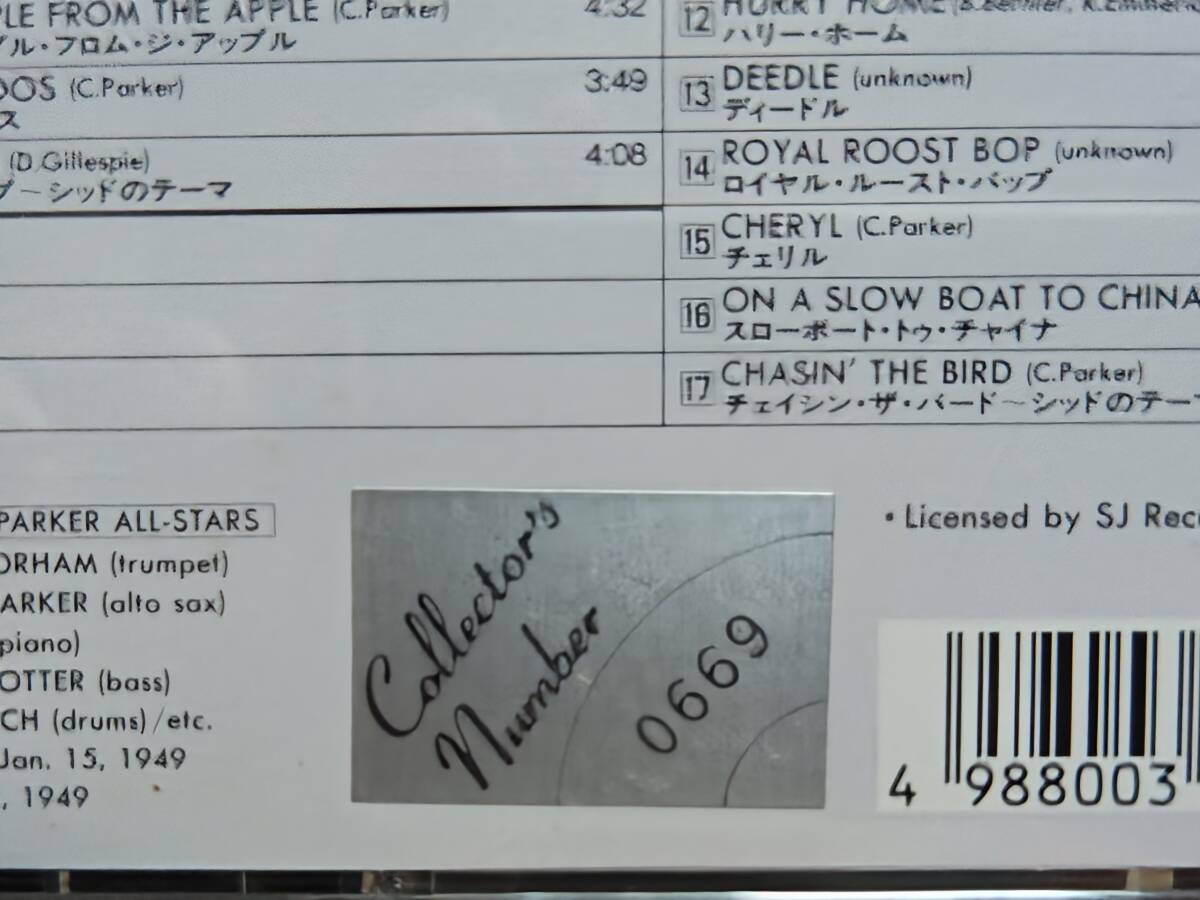 PLE FROM THE APPLE (C.Parker) 4:32
プル・フロム・ジ・アップル
OOS (C.Parker) 3:49
ス
(D.Gillespie) 4:08
プ〜シッドのテーマ
12 HURRY HOME
ハリー・ホーム
13 DEEDLE (unknown)
ディードル
14 ROYAL ROOST BOP (unknown)
ロイヤル・ルースト・バップ
15 CHERYL (C.Parker)
チェリル
16 ON A SLOW BOAT TO CHINA
スローボート・トゥ・チャイナ
17 CHASIN' THE BIRD (C.Parker)
チェイシン・ザ・バード〜シッドのテーマ
PARKER ALL-STARS
ORHAM (trumpet)
ARKER (alto sax)
piano)
OTTER (bass)
CH (drums)/etc.
Jan. 15, 1949
, 1949
Collector's
Number
0669
• Licensed by SJ Reco
4 988003